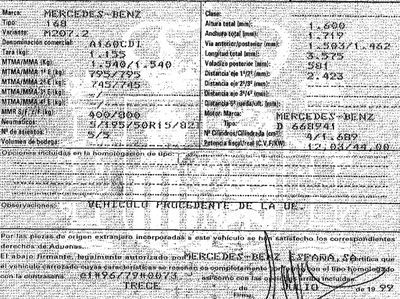 Marca: MERCEDES-BENZ
Tipo: 168
Variante: M207.2
Denominación comercial: A160CDI
Tara (kg): 1.155
MTMA/MMA (kg): 1.540/1.540
MTMA/MMA 1º E (kg): 795/795
MTMA/MMA 2º E (kg): 745/745
MTMA/MMA
MTMA/MMA
400/800
Neumáticos: 5/195/50R15/82T
Nº de asientos: 5/5
Volumen de bodega:
Clase:
Altura total (mm): 1.600
Anchura total (mm): 1.719
Vía anterior/posterior (mm): 1.503/1.462
Longitud total (mm): 3.575
Voladizo posterior (mm): 581
Distancia eje 1º/2º (mm): 2.423
Distancia eje 2º/3º (mm):
Distancia eje 3º/4º (mm):
Motor: Marca: MERCEDES-BENZ
Tipo: D 668941
Nº Cilindros/Cilindrada (cm³): 4/1.689
Potencia fiscal/real (C.V.F/KW): 12,03/44,00
Opciones incluidas en la homologación de tipo:
Observaciones: VEHICULO PROCEDENTE DE LA UE.
Por las piezas de origen extranjero incorporadas a este vehículo se han satisfecho los correspondientes
derechos de Aduanas.
El abajo firmante, legalmente autorizado por MERCEDES-BENZ ESPAÑA,SA certifica que
el vehículo carrozado cuyas características se reseñan es completamente conforme con el tipo homologado
con la contraseña
TRECE de JULIO de 1999
Firma: